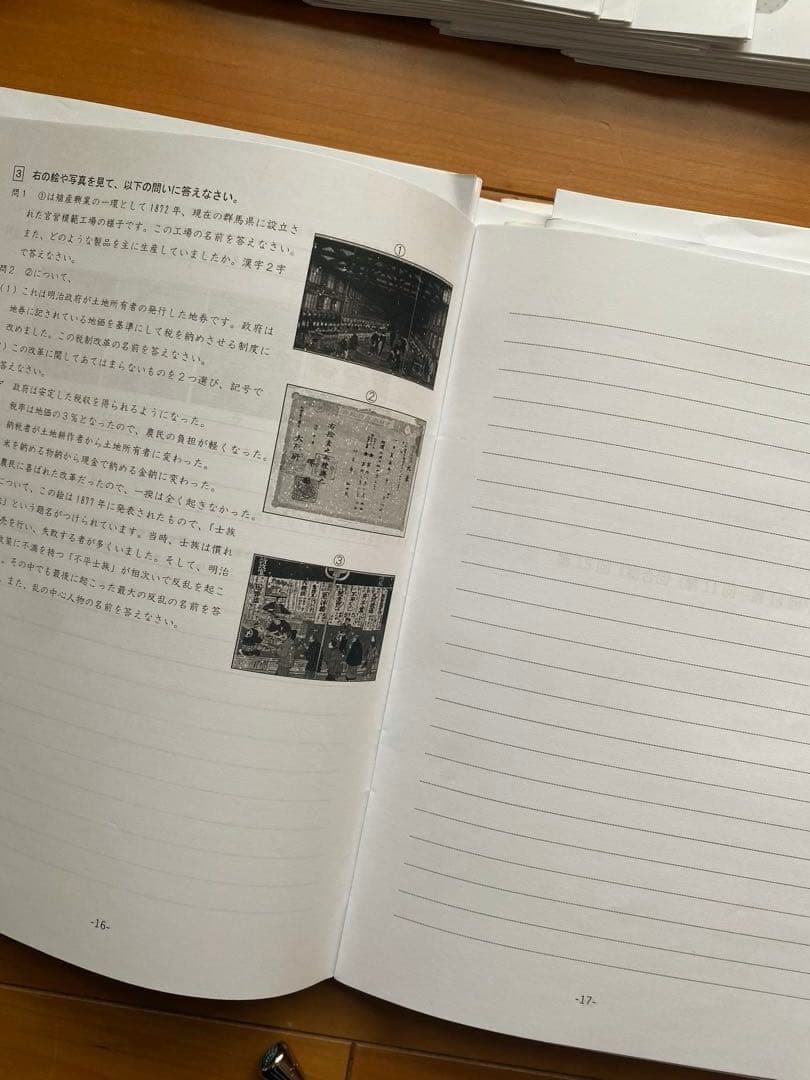 3 右の絵や写真を見て、以下の問いに答えなさい。
問1 ①は殖産興業の一環として1872年、現在の群馬県に設立さ
れた官営模範工場の様子です。この工場の名前を答えなさい。
また、どのような製品を主に生産していましたか。漢字2字
で答えなさい。
問2 ②について、
(1) これは明治政府が土地所有者の発行した地券です。政府は
地券に記されている地価を基準にして税を納めさせる制度に
改めました。この税制改革の名前を答えなさい。
)この改革に関してあてはまらないものを2つ選び、記号で
答えなさい。
政府は安定した税収を得られるようになった。
税率は地価の3%となったので、農民の負担が軽くなった。
納税者が土地耕作者から土地所有者に変わった。
米を納める物納から現金で納める金納に変わった。
農民に喜ばれた改革だったので、一揆は全く起きなかった。
について、この絵は1877年に発表されたもので、「士族
」という題名がつけられています。当時、士族は慣れ
売を行い、失敗する者が多くいました。そして、明治
政策に不満を持つ「不平士族」が相次いで反乱を起こ
。その中でも最後に起こった最大の反乱の名前を答
。また、乱の中心人物の名前を答えなさい。
①
②
③
-16-
-17-